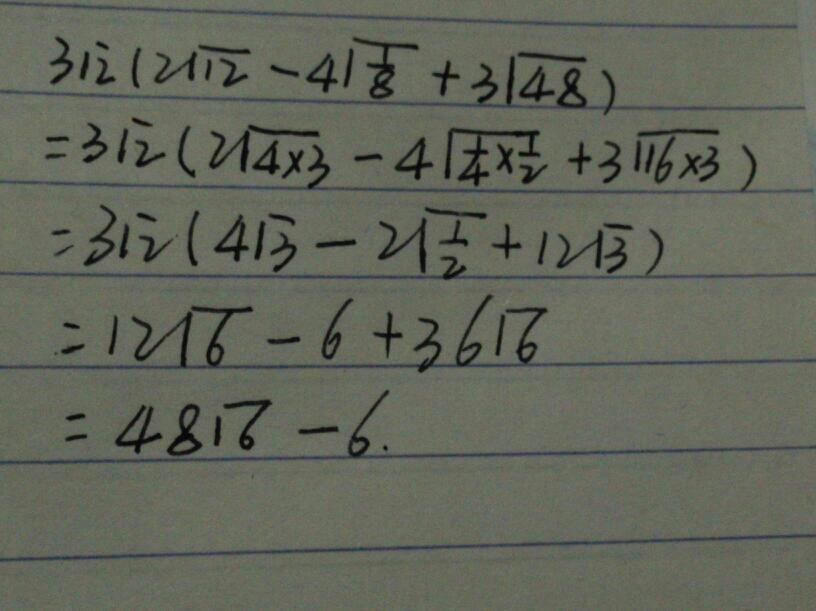 3√2(2√12 − 4√(1/8) + 3√48)
=3√2(2√(4×3) − 4√(1/4×1/2) + 3√(16×3))
=3√2(4√3 − 2√(1/2) + 12√3)
=12√6 − 6 + 36√6
=48√6 − 6.